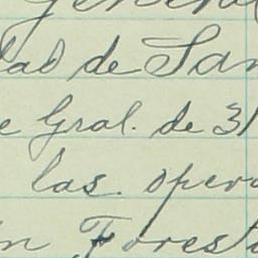 General
dad de San
e Gral. de 31
las opera
n Foresta